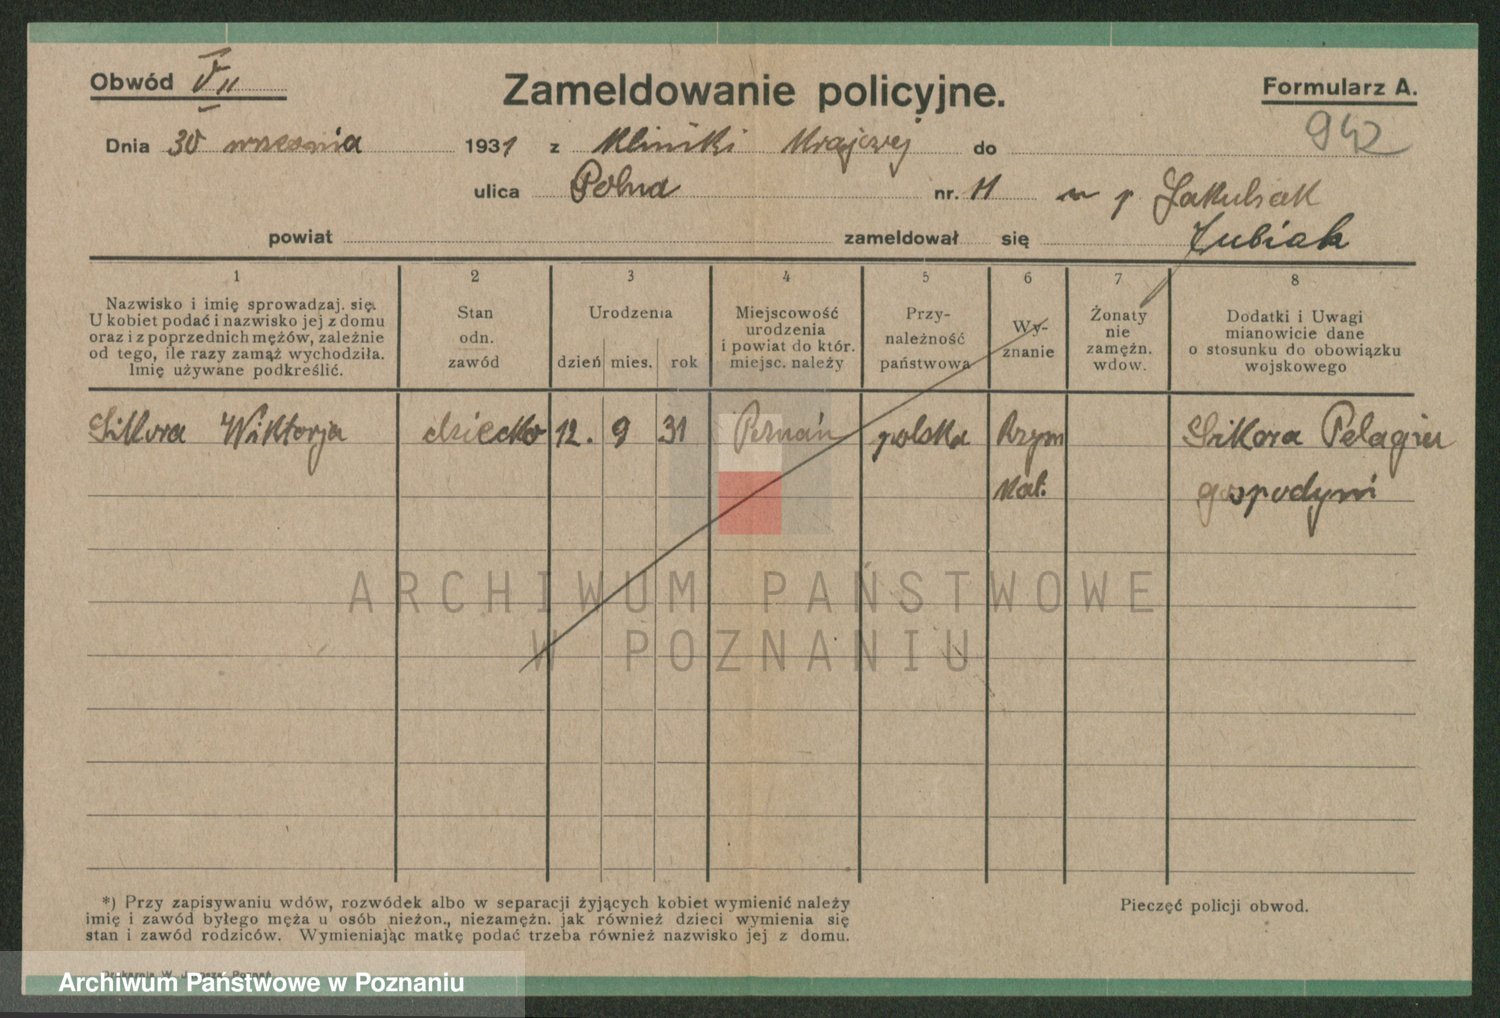 Obwód VII
Zameldowanie policyjne.
Formularz A.
942
Dnia 30 września 1931 z Kliniki Krajowej do
ulica Polna nr. 11 u p Jakubiak
Łubiak
powiat zameldował się
1 2 3 4 5 6 7 8
Nazwisko i imię sprowadzaj. się.
U kobiet podać i nazwisko jej z domu
oraz i z poprzednich mężów, zależnie
od tego, ile razy zamąż wychodziła.
Imię używane podkreślić.
Stan
odn.
zawód
Urodzenia
dzień mies. rok
Miejscowość
urodzenia
i powiat do któr.
miejsc. należy
Przy-
należność
państwowa
Wy-
znanie
Żonaty
nie
zamężn.
wdow.
Dodatki i Uwagi
mianowicie dane
o stosunku do obowiązku
wojskowego
Sikora Wiktorja dziecko 12. 9 31 Poznań polska Rzym Sikora Pelagia
kat. gospodyni
ARCHIWUM PAŃSTWOWE
W POZNANIU
*) Przy zapisywaniu wdów, rozwódek albo w separacji żyjących kobiet wymienić należy
imię i zawód byłego męża u osób nieżon., niezamężn. jak również dzieci wymienia się
stan i zawód rodziców. Wymieniając matkę podać trzeba również nazwisko jej z domu.
Pieczęć policji obwod.
Archiwum Państwowe w Poznaniu